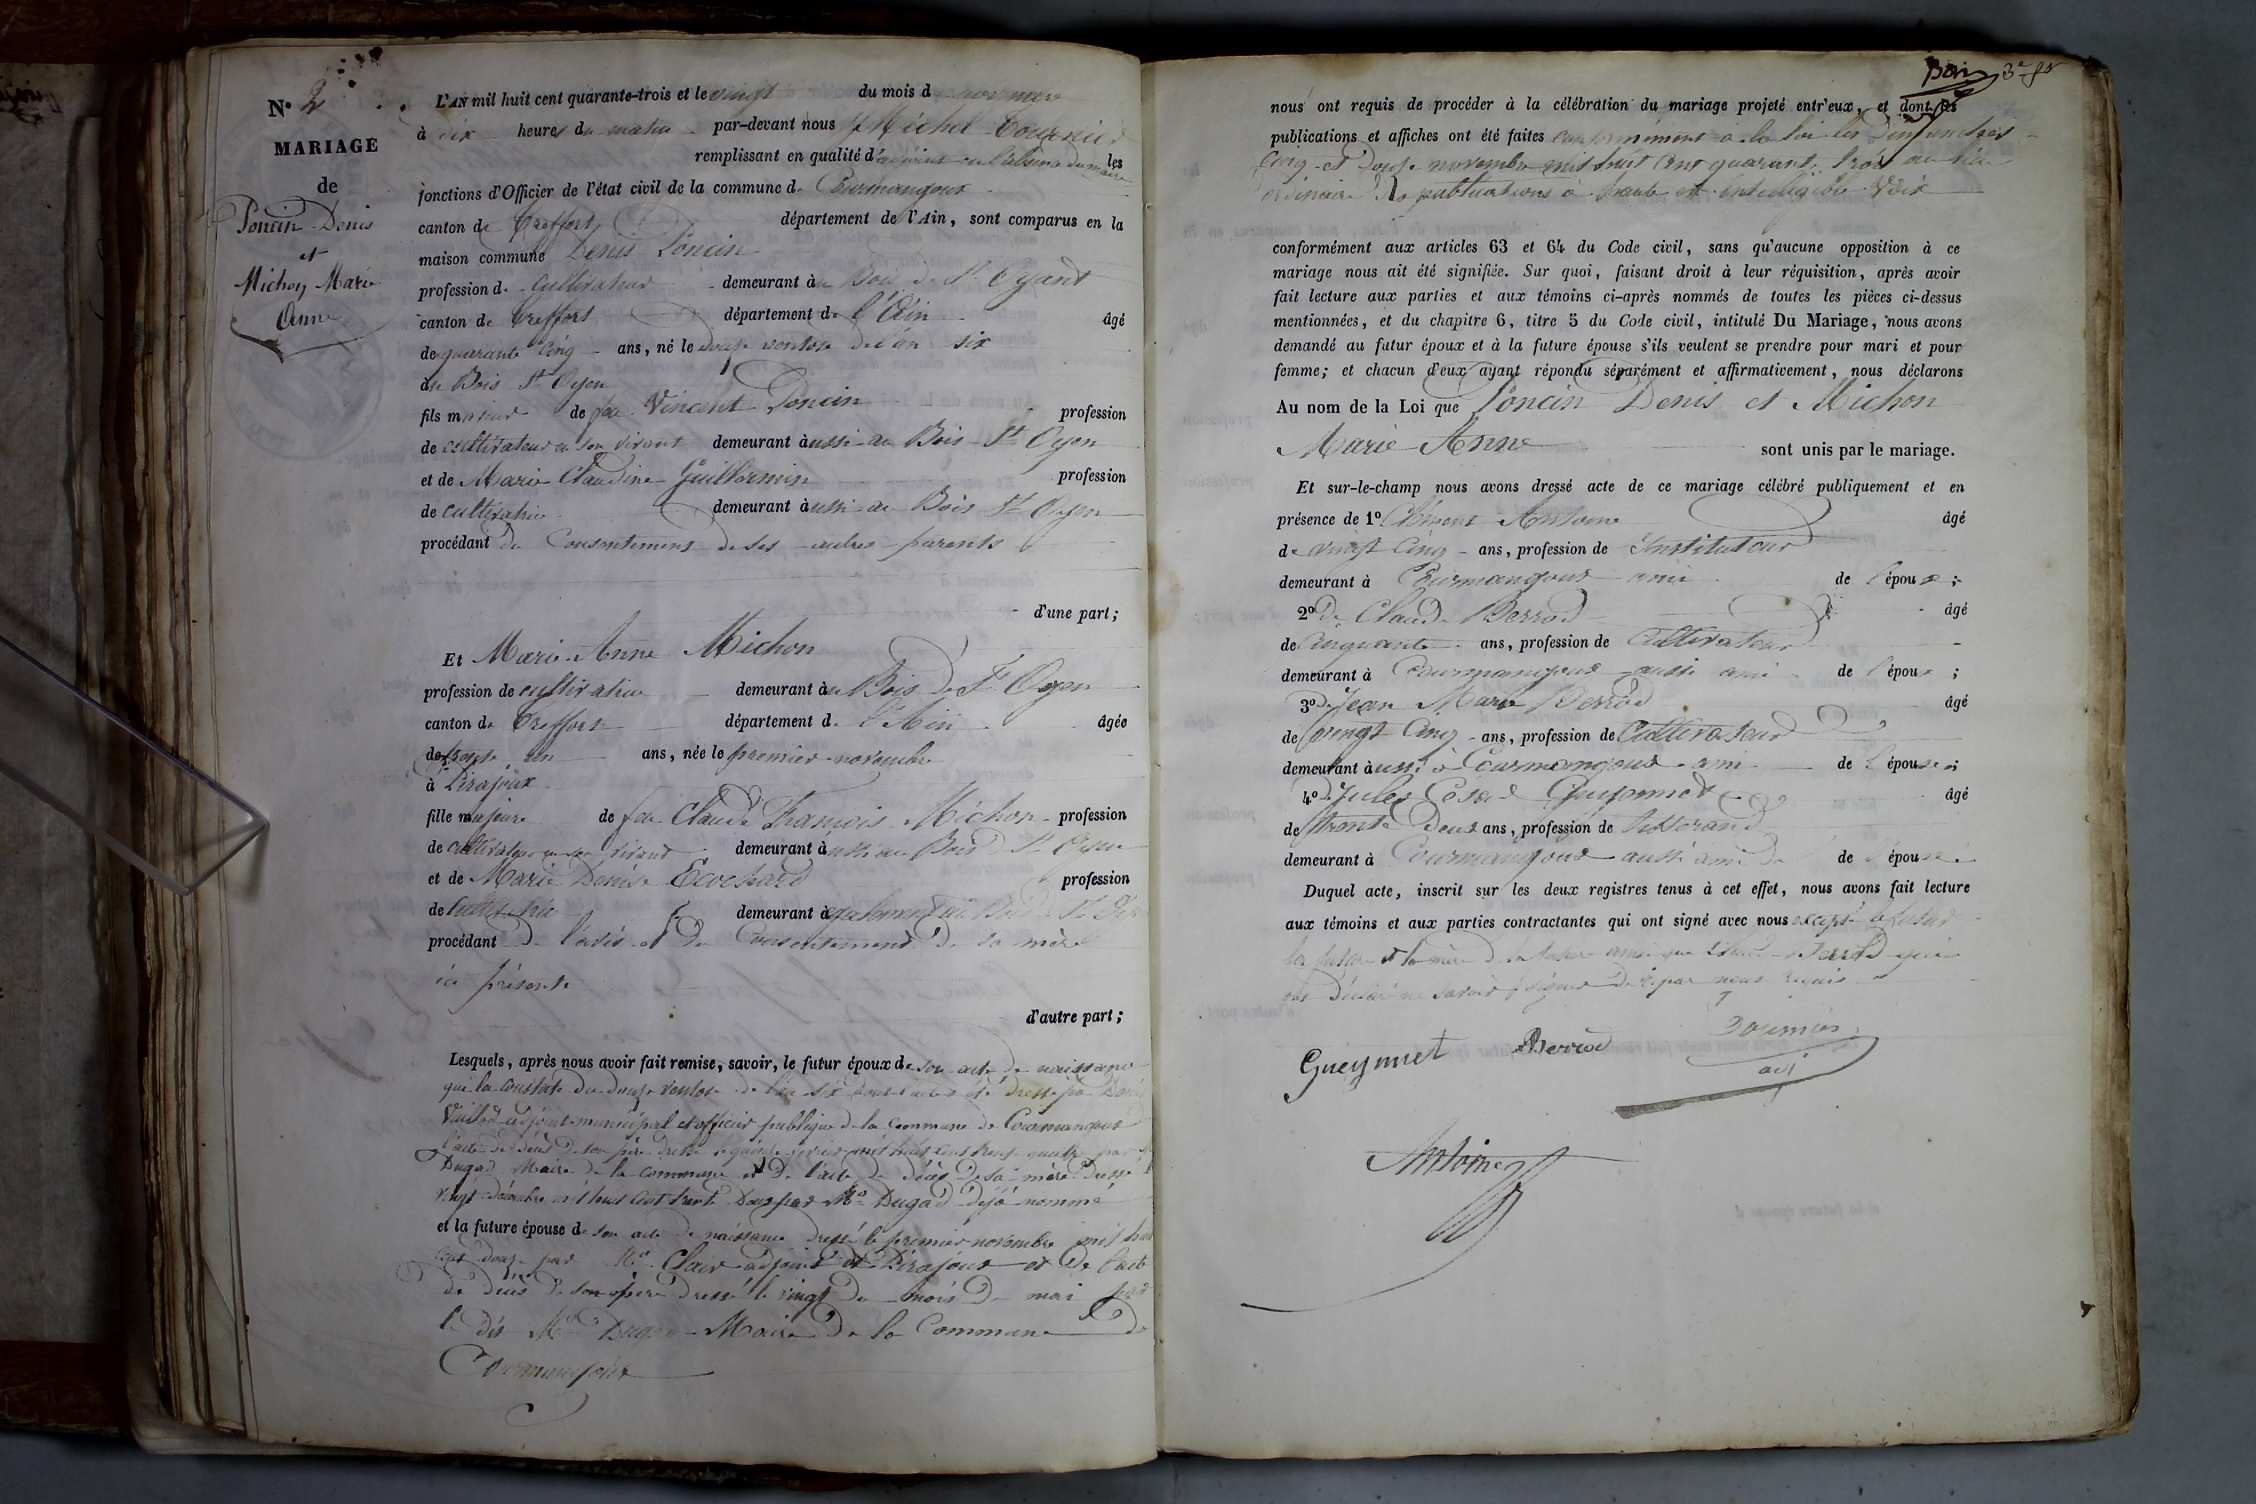 N° 2
MARIAGE
de
Poncin Denis
et
Michon Marie
Anne
L'AN mil huit cent quarante-trois et le vingt du mois de novembre
à dix heures du matin par-devant nous Michel Tournier
remplissant en qualité d'adjoint en l'absence du maire les
fonctions d'Officier de l'état civil de la commune de Courmangoux
canton de Treffort département de l'Ain, sont comparus en la
maison commune Denis Poncin
profession de cultivateur demeurant au Bois de St Oyant
canton de Treffort département de l'Ain âgé
de quarante cinq ans, né le douze ventose de l'an six
au Bois St Oyen
fils majeur de feu Vincent Poncin profession
de cultivateur en son vivant demeurant aussi au Bois St Oyen
et de Marie Claudine Guillermin profession
de cultivatrice demeurant aussi au Bois St Oyen
procédant du Consentement de ses autres parents
d'une part;
Et Marie Anne Michon
profession de cultivatrice demeurant au Bois de St Oyen
canton de Treffort département de l'Ain âgée
de trente un ans, née le premier novembre
à Pirajoux
fille majeure de feu Claude François Michon profession
de cultivateur en son vivant demeurant aussi au Bois St Oyen
et de Marie Denise Ecochard profession
de cultivatrice demeurant également au Bois St Oyen
procédant de l'avis et du Consentement de sa mère
ici présente
d'autre part;
Lesquels, après nous avoir fait remise, savoir, le futur époux de son acte de naissance
qui la constate du douze ventose de l'an six dont l'acte a été dressé par
adjoint municipal et officier publique de la Commune de Courmangoux
l'acte de décès de son père dressé le quinze mil huit cent trente quatre par
Dugad Maire de la commune et de l'acte de décès de sa mère dressé le
vingt décembre mil huit cent trente deux par Mr Dugad déjà nommé
et la future épouse de son acte de naissance dressé le premier novembre mil huit
cent douze par Mr Clair adjoint de Pirajoux et de l'acte
de décès de son père dressé le vingt du mois de mai par
le dit Mr Dugad Maire de la Commune de
Courmangoux
nous ont requis de procéder à la célébration du mariage projeté entr'eux, et dont les
publications et affiches ont été faites conformément a la loi les dimanches
cinq et douze novembre mil huit cent quarante trois au lieu
ordinaire des publications à haute et intelligible voix
conformément aux articles 63 et 64 du Code civil, sans qu'aucune opposition à ce
mariage nous ait été signifiée. Sur quoi, faisant droit à leur réquisition, après avoir
fait lecture aux parties et aux témoins ci-après nommés de toutes les pièces ci-dessus
mentionnées, et du chapitre 6, titre 5 du Code civil, intitulé Du Mariage, nous avons
demandé au futur époux et à la future épouse s'ils veulent se prendre pour mari et pour
femme; et chacun d'eux ayant répondu séparément et affirmativement, nous déclarons
Au nom de la Loi que Poncin Denis et Michon
Marie Anne sont unis par le mariage.
Et sur-le-champ nous avons dressé acte de ce mariage célébré publiquement et en
présence de 1° Clément Antoine âgé
de vingt cinq ans, profession de Instituteur
demeurant à Courmangoux ami de l'époux;
2° De Claude Berrod âgé
de cinquante ans, profession de Cultivateur
demeurant à Courmangoux aussi ami de l'époux;
3° De Jean Marie Berrod âgé
de vingt cinq ans, profession de Cultivateur
demeurant aussi à Courmangoux ami de l'épouse;
4° Jules César Gueyonnet âgé
de trente deux ans, profession de Tisserand
demeurant à Courmangoux aussi ami de de l'épouse
Duquel acte, inscrit sur les deux registres tenus à cet effet, nous avons fait lecture
aux témoins et aux parties contractantes qui ont signé avec nous excepté le futur
la future et la mère de la future ainsi que Claude Berrod qui
ont déclaré ne savoir signer de ce par nous requis
Gueynnet Berrod Tournier
adj
Antoine